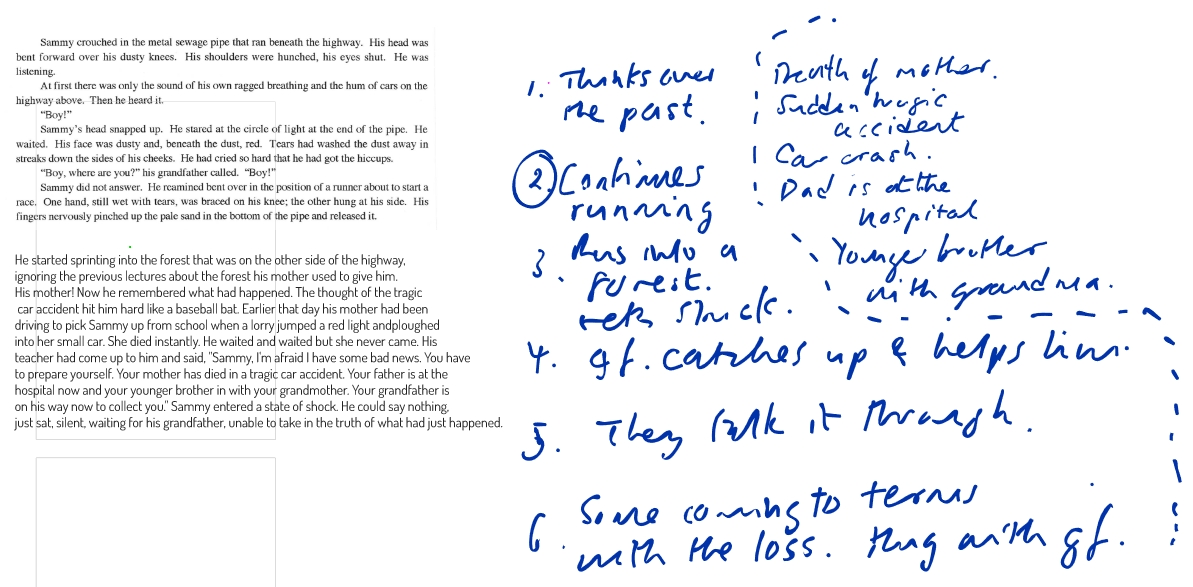 Sammy crouched in the metal sewage pipe that ran beneath the highway. His head was
bent forward over his dusty knees. His shoulders were hunched, his eyes shut. He was
listening.
At first there was only the sound of his own ragged breathing and the hum of cars on the
highway above. Then he heard it.
"Boy!"
Sammy's head snapped up. He stared at the circle of light at the end of the pipe. He
waited. His face was dusty and, beneath the dust, red. Tears had washed the dust away in
streaks down the sides of his cheeks. He had cried so hard that he had got the hiccups.
"Boy, where are you?" his grandfather called. "Boy!"
Sammy did not answer. He reamined bent over in the position of a runner about to start a
race. One hand, still wet with tears, was braced on his knee; the other hung at his side. His
fingers nervously pinched up the pale sand in the bottom of the pipe and released it.
He started sprinting into the forest that was on the other side of the highway,
ignoring the previous lectures about the forest his mother used to give him.
His mother! Now he remembered what had happened. The thought of the tragic
car accident hit him hard like a baseball bat. Earlier that day his mother had been
driving to pick Sammy up from school when a lorry jumped a red light andploughed
into her small car. She died instantly. He waited and waited but she never came. His
teacher had come up to him and said, "Sammy, I'm afraid I have some bad news. You have
to prepare yourself. Your mother has died in a tragic car accident. Your father is at the
hospital now and your younger brother in with your grandmother. Your grandfather is
on his way now to collect you." Sammy entered a state of shock. He could say nothing,
just sat, silent, waiting for his grandfather, unable to take in the truth of what had just happened.
1. Thinks over
the past.
Death of mother.
Sudden tragic
accident
Car crash.
Dad is at the
hospital
Younger brother
with grandma.
2. Continues
running
3. Runs into a
forest.
Gets stuck.
4. gf. catches up & helps him.
5. They talk it through.
6. Some coming to terms
with the loss. Hug with gf.